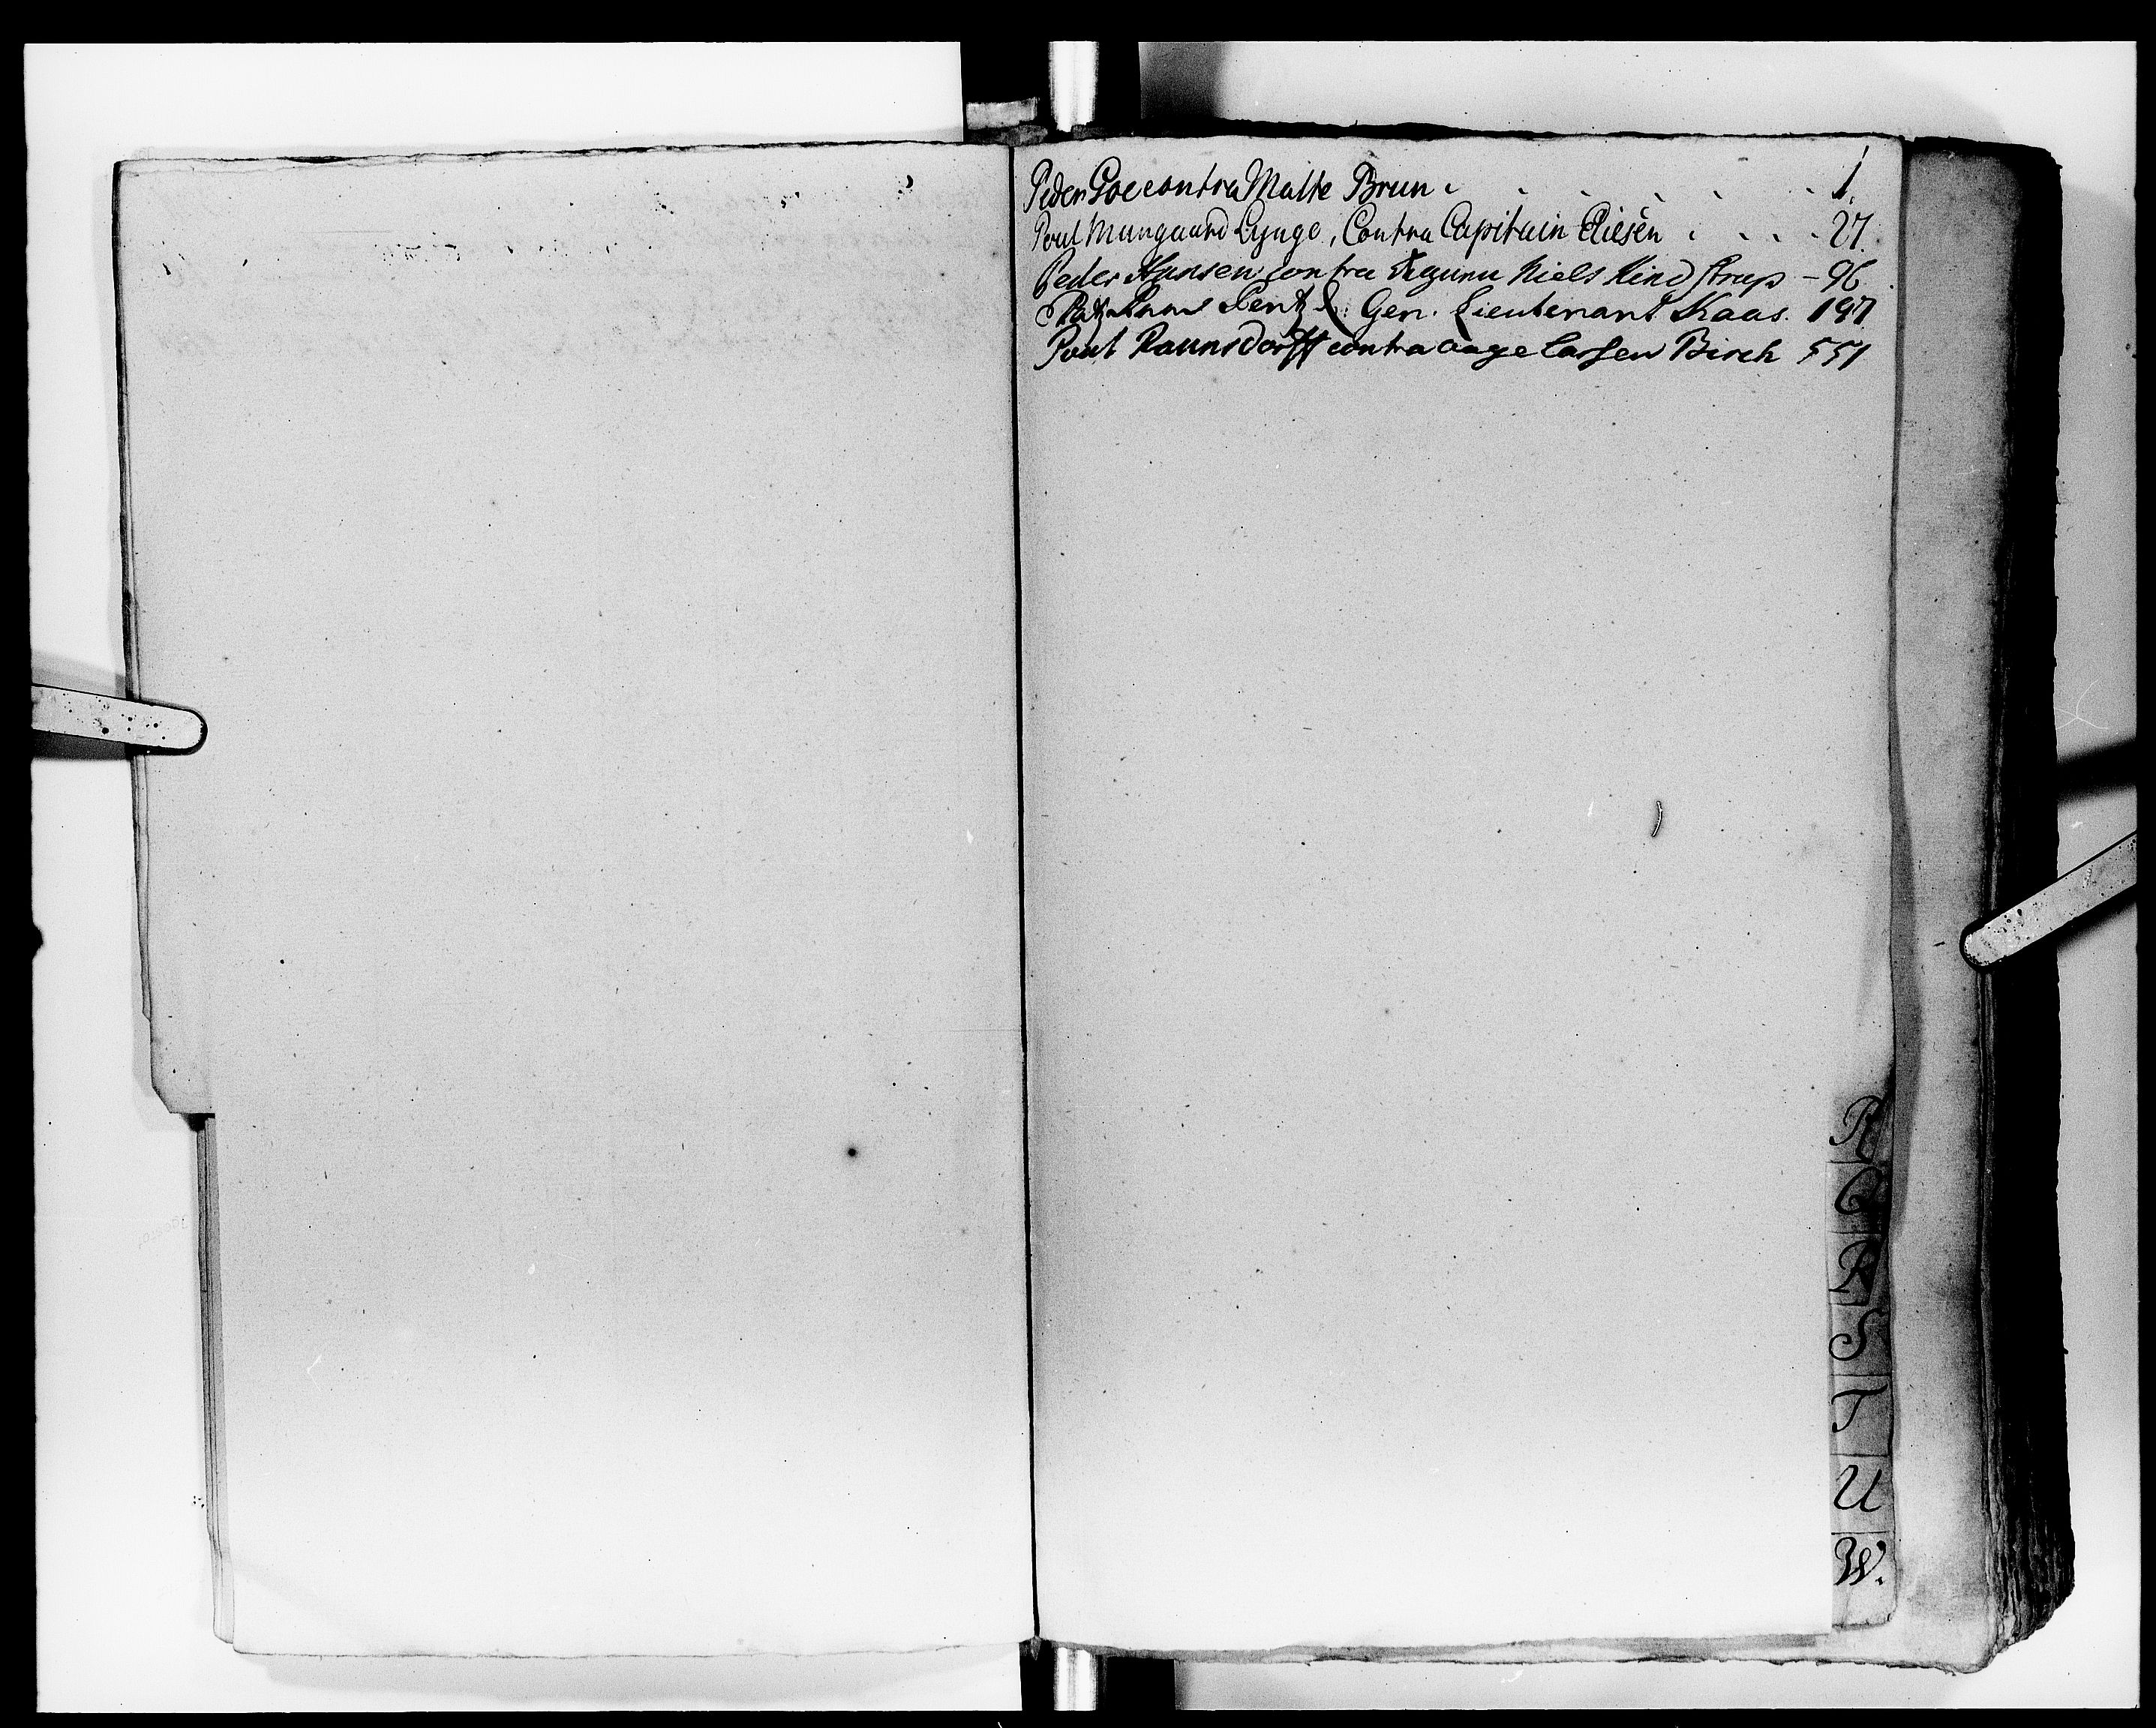 Peder Goe contra Malte Brun . . . . . . . 1.
Poul Mungaard Lynge, Contra Capitain Eliesen . . . . 27.
Peder Hansen contra Niels Kindstrup - 96.
Pentz C: Gen. Lieutenant Kaas. 197
Poul Raunsdorff contra Aage Lassen Birch 551
P
Q
R
S
T
U
W.